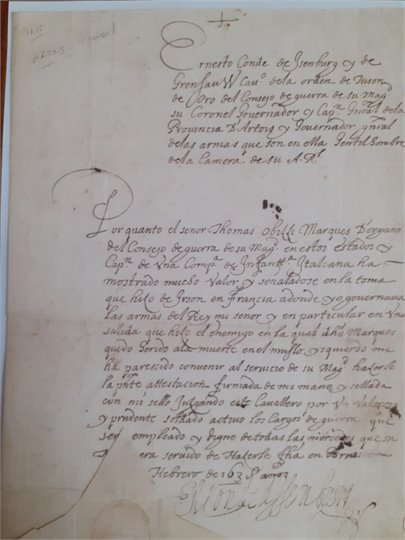 Artois
Ernesto Conde de Isenburg y de
Grensau W Cavo de la orden de Tuson
de Oro del Consejo de guerra de su Magd
su Coronel Governador y Capn Gñral de la
Provincia D'Artois y Governador gñral
de las armas que son en ella Gentil Hombre
de la Camera de su A. Rl
Por quanto el señor Thomas Marques D'orgiano
del Consejo de guerra de su Magd en estos estados y
Capn de Una Compa de Infantra Italiana ha
mostrado mucho Valor y señaladose en la toma
que hizo de Irson en Francia adonde yo governava
las armas del Rey mi señor y en particular en Una
salida que hizo el enemigo en la qual dho Marques
quedo herido a la muerte en el muslo ysquierdo me
ha parescido convenir al servicio de su Magd hazerle
la pñte attestacion firmada de mi mano y sellada
con mi sello Juzgando este Cavallero por Un Valeroso
y prudente soldado activo los Cargos de guerra que
sey empleado y digno de todas las mercedes que su
era servido de Hazerle fha en
Hebrero de 163 años